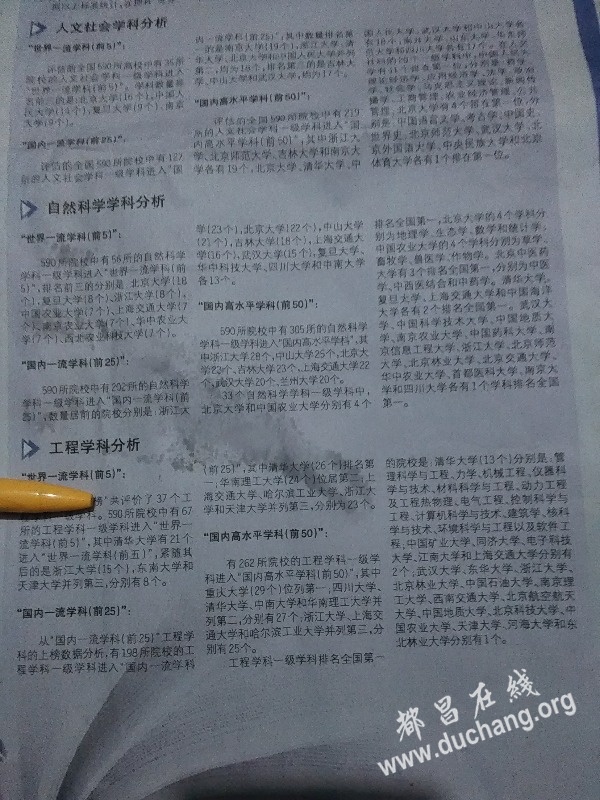 人文社会学科分析
“世界一流学科(前5)”:
评估的全国590所院校中有35所
院校的人文社会学科一级学科进入
“世界一流学科(前5)”，学科数量排
名前三的是:北京大学(16个)，中国人
民大学(14个)，复旦大学(9个)，南京
大学(9个)。
“国内一流学科(前25)”:
评估的全国590所院校中有127
所的人文社会学科一级学科进入“国
内一流学科(前25)”，其中数量排名第
一的是南京大学(19个)，浙江大学、清
华大学、北京大学和中国人民大学并列
第二，均为18个，排名第三的是吉林大
学、中山大学和武汉大学，均为17个。
“国内高水平学科(前50)”:
评估的全国590所院校中有219
所的人文社会学科一级学科进入“国
内高水平学科(前50)”，其中浙江大
学、北京师范大学、吉林大学和南京大
学各有19个，北京大学、清华大学、中
国人民大学、武汉大学和中山大学各
有18个，南开大学、山东大学、华东师
范大学和四川大学各有17个。
京大学有4个排在第一位，分
别是，中国语言文学、考古学、中国史、
世界史，北京师范大学、武汉大学、北
京外国语大学、中央民族大学和北京
体育大学各有1个排在第一位。
自然科学学科分析
“世界一流学科(前5)”:
590所院校中有58所的自然科学
学科一级学科进入“世界一流学科(前
5)”，排名前三的分别是 北京大学(18
个)，复旦大学(8个)、浙江大学(8个)，
中国农业大学(7个)、上海交通大学
(7个)、南京农业大学(7个)、华中农业大
学(7个)、西北农业科技大学(7个)。
“国内一流学科(前25)”:
590所院校中有202所的自然科学
学科一级学科进入“国内一流学科(前
25)”，数量居前的院校分别是:浙江大
学(23个)，北京大学(22个)，中山大学
(21个)，吉林大学(18个)，上海交通大
学(16个)，武汉大学(15个)，复旦大学、
华中科技大学、四川大学和中南大学
各13个。
“国内高水平学科(前50)”:
590所院校中有305所的自然科学
学科一级学科进入“国内高水平学科”，其
中浙江大学28个，中山大学25个，北京大
学23个，吉林大学23个，上海交通大学22
个，武汉大学20个，兰州大学20个。
33个自然科学学科一级学科中，
北京大学和中国农业大学分别有4个
排名全国第一，北京大学的4个学科分
别为地理学、生态学、数学和统计学；
中国农业大学的4个学科分别为草学、
畜牧学、兽医学、作物学。北京中医药
大学有3个排名全国第一，分别为中医
学、中西医结合和中药学。清华大学、
复旦大学、上海交通大学和中国海洋
大学各有2个排名全国第一。武汉大
学、中国科学技术大学、中国地质大
学、南京农业大学、中国药科大学、南
京信息工程大学、浙江大学、北京师范
大学、北京林业大学、北京交通大学、
华中农业大学、首都医科大学、南京大
学和四川大学各有1个学科排名全国
第一。
工程学科分析
“世界一流学科(前5)”:
榜”共评价了37个工
科。590所院校中有67
所的工程学科一级学科进入“世界一
流学科(前5)”，其中清华大学有21个
进入“世界一流学科(前五)”，紧随其
后的是浙江大学(15个)，东南大学和
天津大学并列第三，分别有8个。
“国内一流学科(前25)”:
从“国内一流学科(前25)”工程学
科的上榜数据分析，有198所院校的工
程学科一级学科进入“国内一流学科
(前25)”，其中清华大学(26个)排名第
一，华南理工大学(24个)位居第二，上
海交通大学、哈尔滨工业大学、浙江大
学和天津大学并列第三，分别为23个。
“国内高水平学科(前50)”:
有262所院校的工程学科一级学
科进入“国内高水平学科(前50)”，其中
重庆大学(29个)位列第一，四川大学、
清华大学、中南大学和华南理工大学并
列第二，分别有27个，浙江大学、上海交
通大学和哈尔滨工业大学并列第三，分
别有25个。
工程学科一级学科排名全国第一
的院校是:清华大学(13个)分别是:管理
科学与工程、力学、机械工程、仪器科
学与技术、材料科学与工程、动力工程
及工程热物理、电气工程、控制科学与
工程、计算机科学与技术、建筑学、核科
学与技术、环境科学与工程以及软件工
程，中国矿业大学、同济大学、电子科技
大学、江南大学和上海交通大学分别有
2个，武汉大学、东华大学、浙江大学、
北京林业大学、中国石油大学、南京理
工大学、西南交通大学、北京航空航天
大学、中国地质大学、北京科技大学、中
国农业大学、天津大学、河海大学和东
北林业大学分别有1个。
都昌在线
www.duchang.org